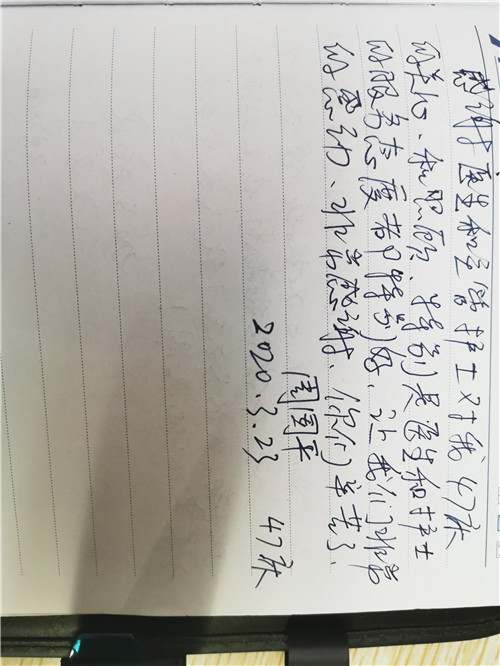 感谢医生和全体护士对我47床
的关心、和照顾、特别是医生和护士
的服务态度都特别好、让我们非常
的感动、非常感谢、你们辛苦了、
周国平
2020.3.23 47床